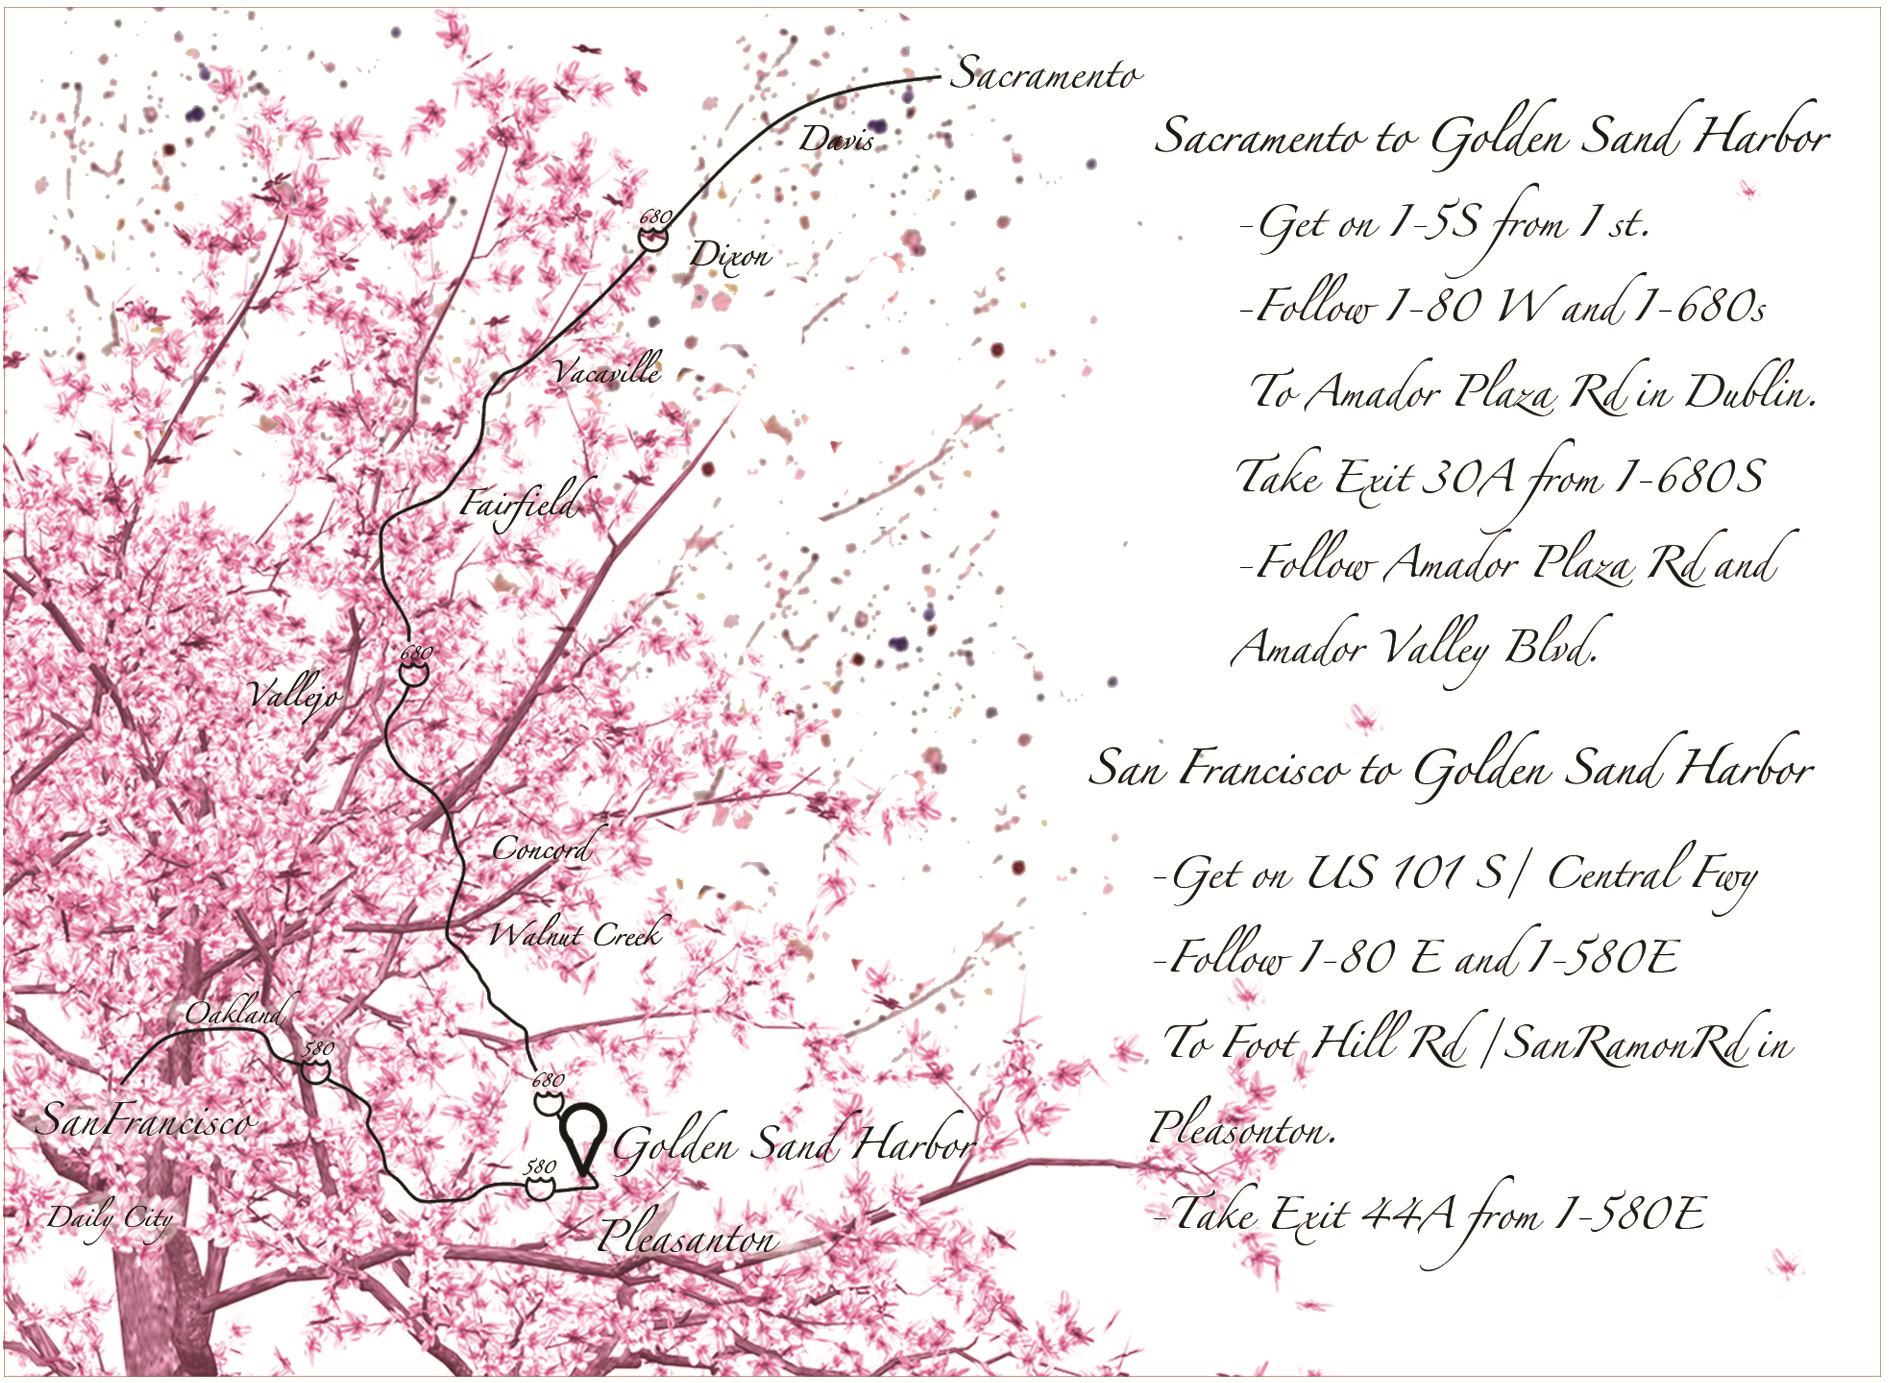 Sacramento
Davis
680
Dixon
Vacaville
Fairfield
680
Vallejo
Concord
Walnut Creek
Oakland
580
680
SanFrancisco
Golden Sand Harbor
580
Daily City
Pleasanton
Sacramento to Golden Sand Harbor
-Get on I-5S from I st.
-Follow I-80 W and I-680s
To Amador Plaza Rd in Dublin.
Take Exit 30A from I-680S
-Follow Amador Plaza Rd and
Amador Valley Blvd.
San Francisco to Golden Sand Harbor
-Get on US 101 S/ Central Fwy
-Follow I-80 E and I-580E
To Foot Hill Rd /SanRamonRd in
Pleasonton.
-Take Exit 44A from I-580E